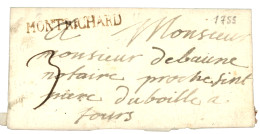 MONTRICHARD
1788
A Monsieur
monsieur debaune
notaire proche sint
piere duboille a
tours